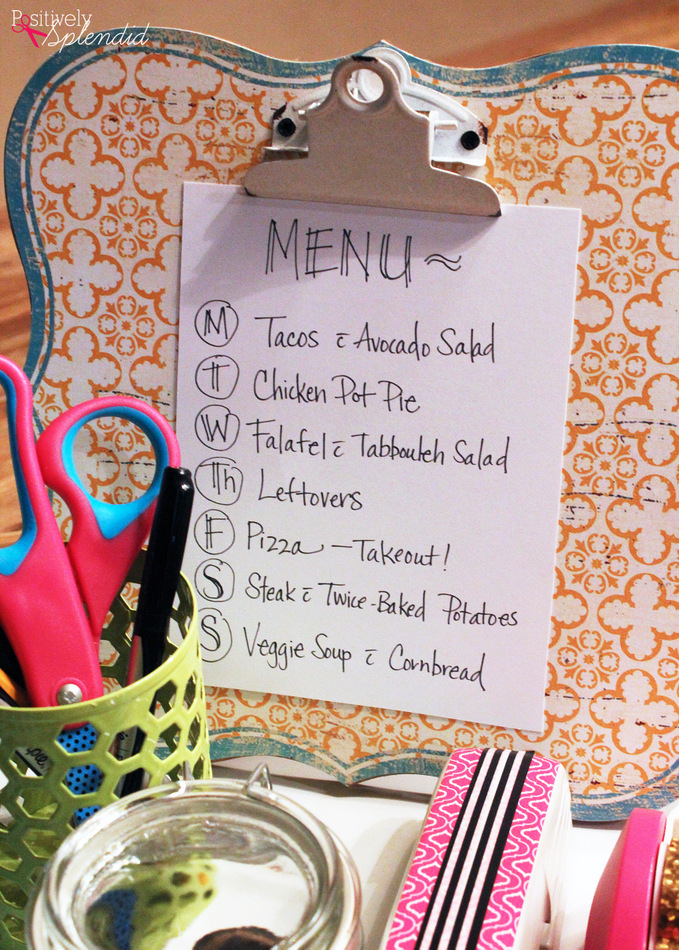 Positively
Splendid
MENU ~
M Tacos c̄ Avocado Salad
T Chicken Pot Pie
W Falafel c̄ Tabbouleh Salad
Th Leftovers
F Pizza — Takeout!
S Steak c̄ Twice-Baked Potatoes
S Veggie Soup c̄ Cornbread